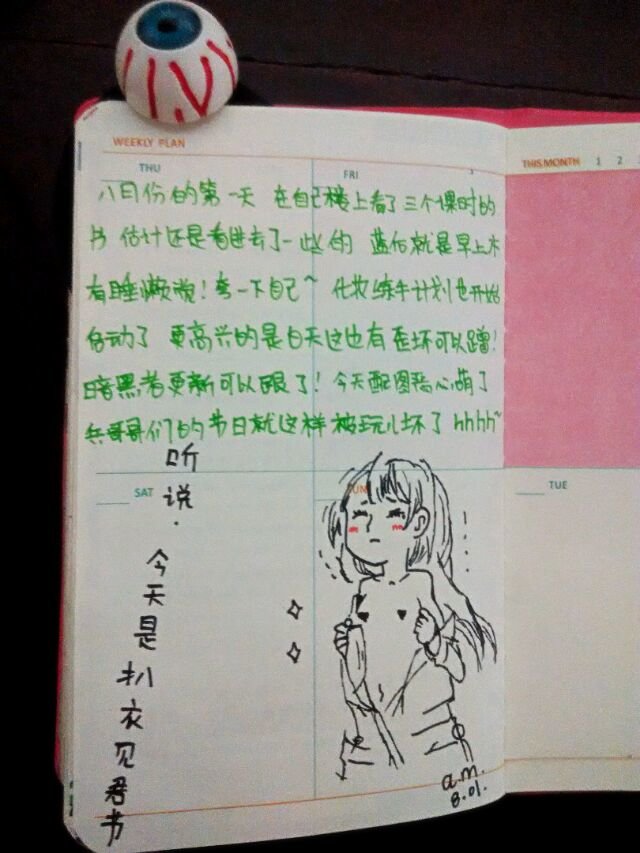 WEEKLY PLAN
THU
FRI
八月份的第一天 在自己楼上看了三个课时的
书 估计还是看进去了一些的 蓝后就是早上木
有睡懒觉！夸一下自己~ 化妆练手计划也开始
启动了 更高兴的是白天这也有歪坏可以蹭！
暗黑者更新可以跟了！今天配图 心萌了
兵哥哥们的节日就这样被玩儿坏了 hhhh~
SAT
SUN
听说.今天是扒衣见君书
a.m.
8.01.
THIS MONTH 1 2
TUE